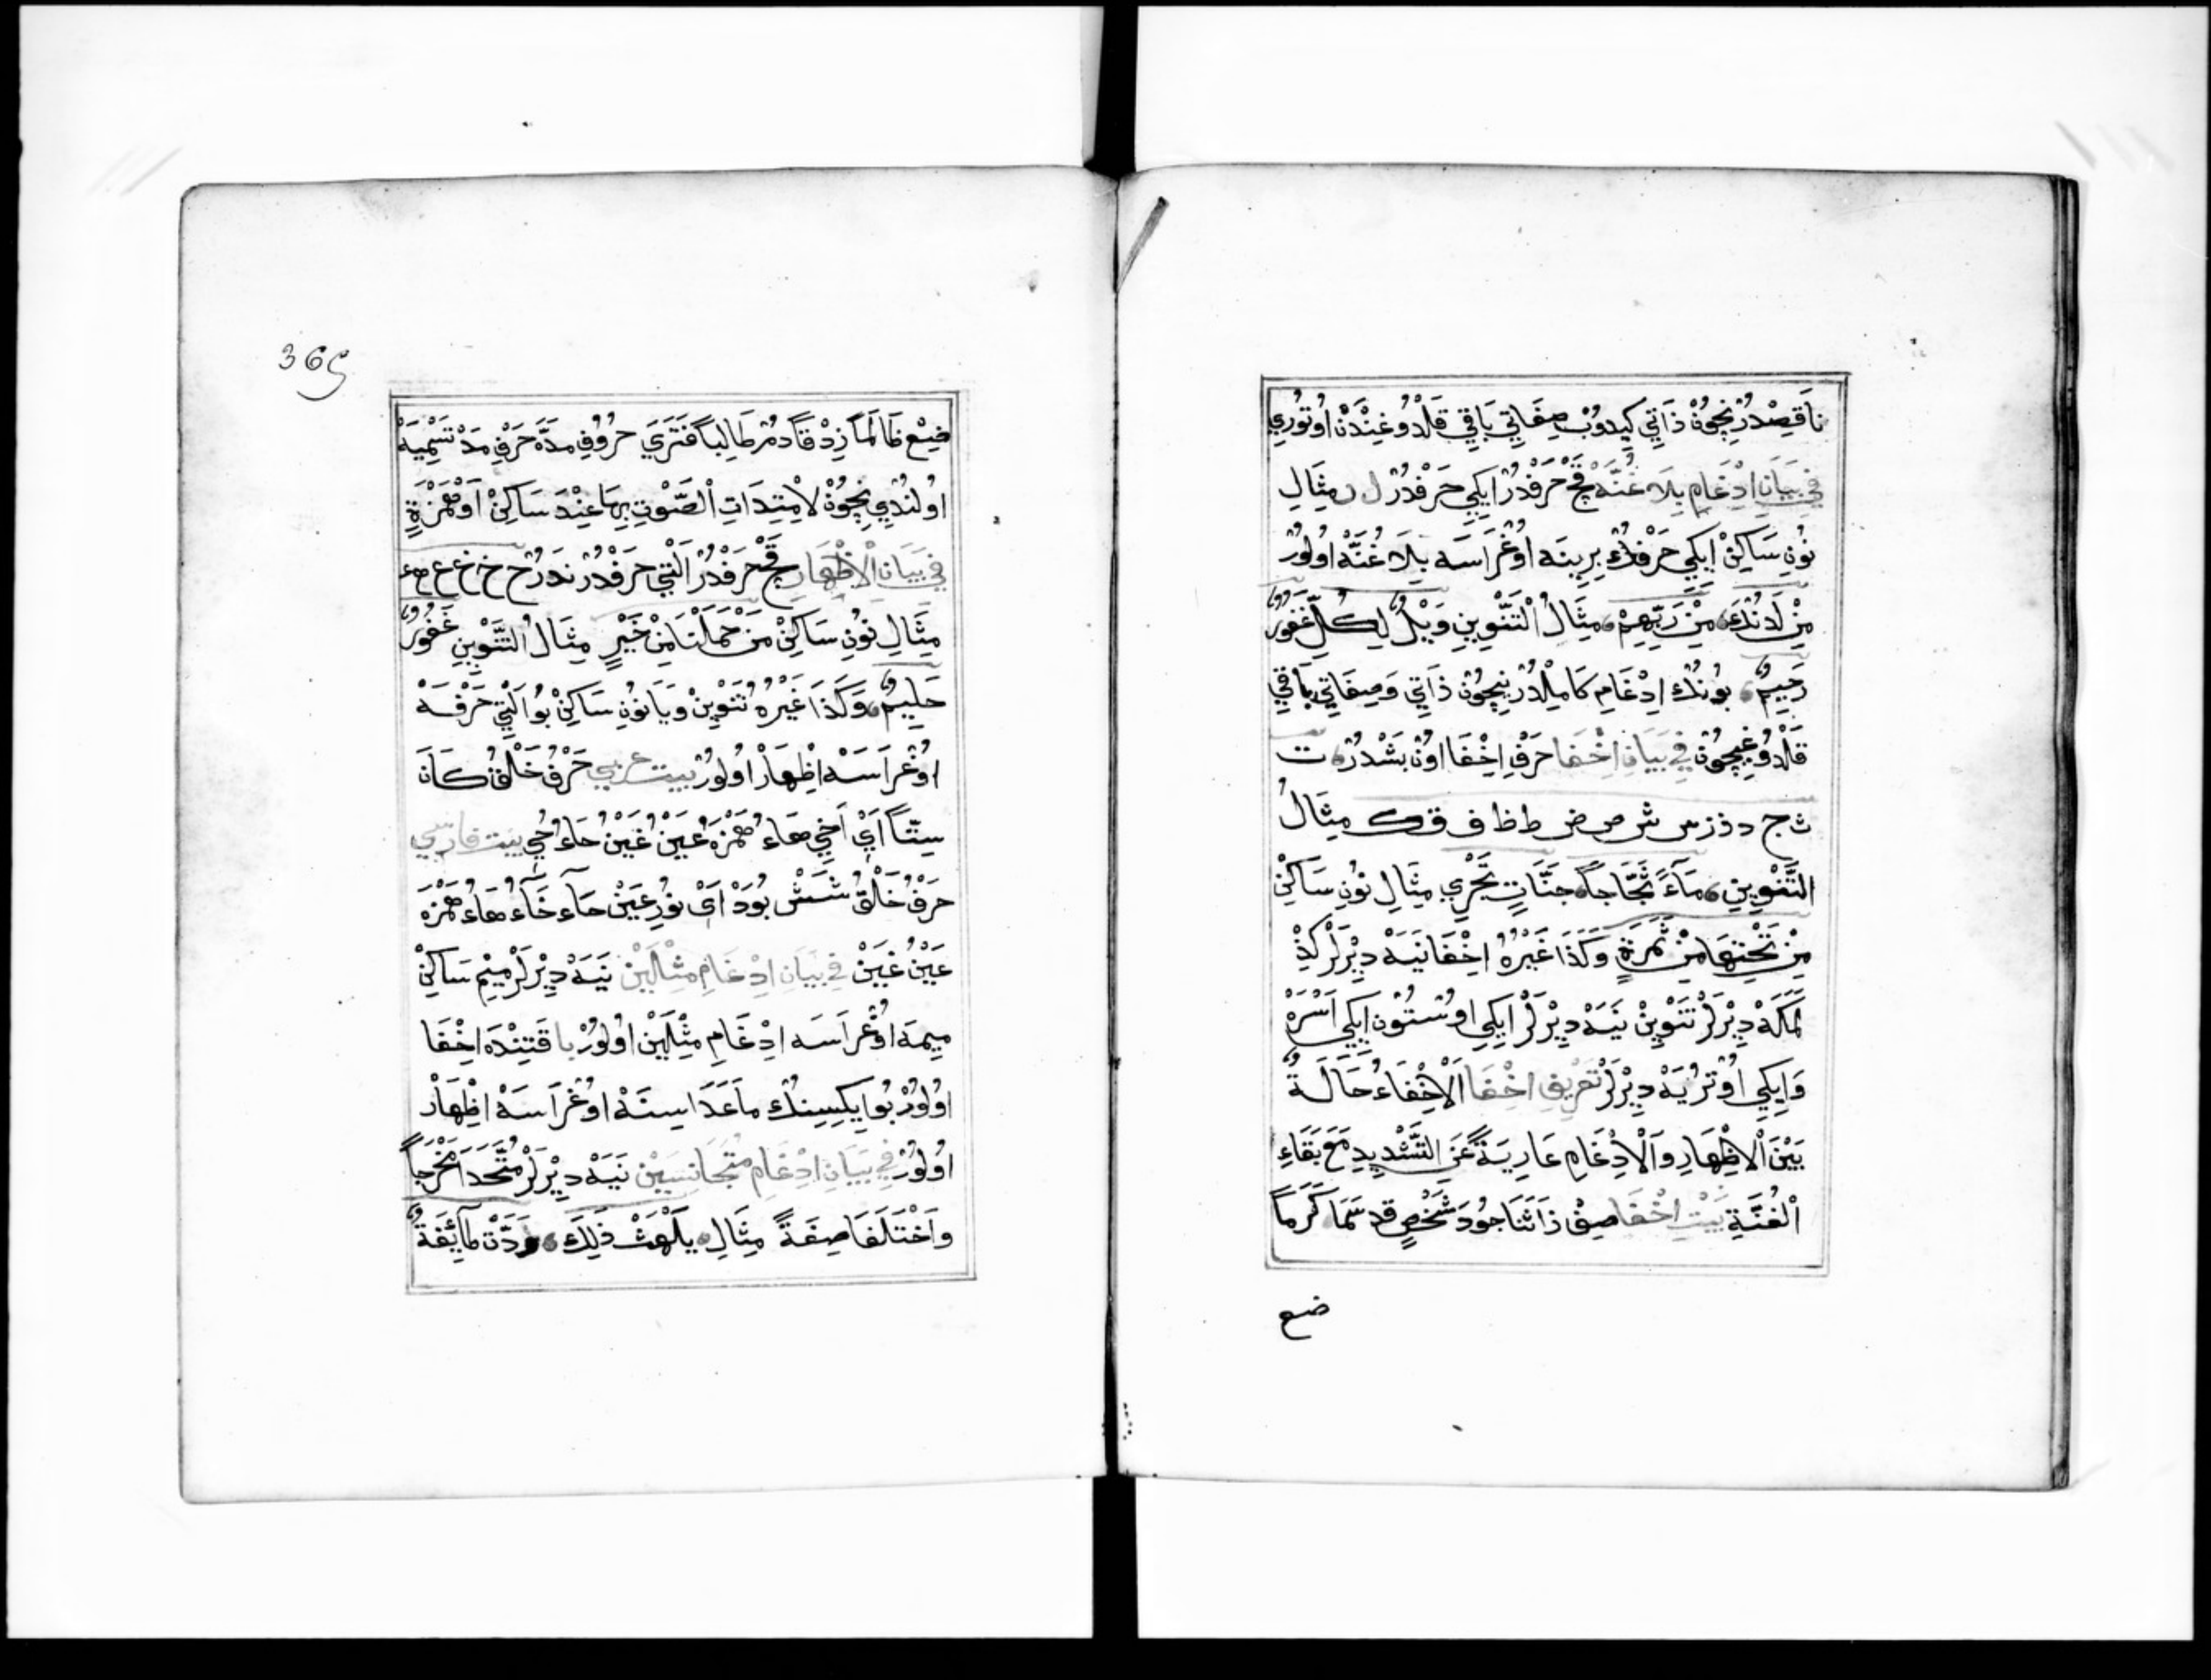 نَاقِصْدُرْ نِچُونْ ذَاتِي كِيدُوبْ صِفَاتِي بَاقِي قَلْدُوغِنْدَنْ اوُتُورِي
فِي بَيَانِ اِدْغَامِ بِلَا غُنَّه قَچْ حَرْفْدُرْ اِيكِي حَرْفْدُرْ ل ر مِثَالِ
نُونِ سَاكِنْ اِيكِي حَرْفِكْ بِرِينَه اوُغْرَاسَه بِلَا غُنَّه اوُلُورْ
مِنْ لَدُنْكَ، مِنْ رَبِّهِمْ، مِثَالُ الْتَنْوِينِ وَيْلٌ لِكُلِّ غَفُورٌ
رَحِيمٌ، بُونُكْ اِدْغَامِ كَامِلْدُرْ نِيچُونْ ذَاتِي وَصِفَاتِي بَاقِي
قَلْدُوغِيچُونْ فِي بَيَانِ اِخْفَا حَرْفِ اِخْفَا اوُنْ بَشْدُرْ، ت
ث ج د ذ ز س ش ص ض ط ظ ف ق ك مِثَالُ
التَّنْوِينِ، مَآءً ثَجَّاجاً، جَنَّاتٍ تَجْرِي مِثَالِ نُونِ سَاكِنْ
مِنْ تَحْتِهَا مِنْ ثَمَرَةٍ وَكَذَا غَيْرُهُ اِخْفَا نَيَه دِيْرلَرْ كِذْ
لَمَكَهْ دِيْرلَرْ تَنْوِينْ نَيَه دِيْرلَرْ اِيكِي اوُسْتُونْ اِيكِي اَسْرَهْ
وَاِيكِي اوُتْرُيَه دِيْرلَرْ تَعْرِيفِ اِخْفَا اَلْاِخْفَاءُ حَالَةٌ
بَيْنَ الْاِظْهَارِ وَالْاِدْغَامِ عَارِيَةً عَنِ التَّشْدِيدِ مَعَ بَقَاءِ
الْغُنَّةِ بَيْتِ اِخْفَا صِفْ ذَا ثَنَا جُودَ شَخْصٍ قَدْ سَمَا كَرَماً
ضع
365
ضِعْ ظَالِماً زِدْ تُقًا دُمْ طَالِباً فَتَرَيَ حُرُوفِ مَدَّه حَرْفِ مَدْ تَسْمِيَهْ
اوُلُنْدِي نِچُونْ لاِمْتِدَاتِ الْصَّوْتِ بِهَا عِنْدَ سَاكِنْ اَوْهَمْزَةٍ
فِي بَيَانِ الْاِظْهَارِ قَچْ حَرْفْدُرْ اَلْتِي حَرْفْدُرْ نَدَرْ ح خ غ ع ه ء
مِثَالِ نُونِ سَاكِنْ مَنْ حَمَلْنَا مِنْ خَيْرٍ مِثَالُ التَّنْوِينِ غَفُورٌ
حَلِيمٌ، وَكَذَا غَيْرُهُ تَنْوِينْ وَيَا نُونِ سَاكِنْ بُو اَلْتِي حَرْفَهْ
اوُغْرَاسَهْ اِظْهَارْ اوُلُورْ بيت عربي حَرْفُ حَلْقٍ كَانَ
سِتّاً اَيْ اَخِي هَاءُ هَمْزَه عَيْنْ غَيْنْ حَاءُ خِي بيت فارسي
حَرْفِ حَلْقْ شَشْ بُوَدْ اَيْ نُورِ عَيْنْ حَاءُ خَاءُ هَاءُ هَمْزَه
عَيْنْ غَيْنْ فِي بَيَانِ اِدْغَامِ مِثْلَيْنْ نَيَهْ دِيْرلَرْ مِيْمِ سَاكِنْ
مِيمَه اوُغْرَاسَه اِدْغَامِ مِثْلَيْنْ اوُلُورْ بَا قَتِنْدَه اِخْفَا
اوُلُورْ بُو اِيكِسِنُكْ مَاعَدَاسِنَهْ اوُغْرَاسَهْ اِظْهَارْ
اوُلُورْ فِي بَيَانِ اِدْغَامِ مُتَجَانِسَيْنْ نَيَهْ دِيْرلَرْ مُتَّحَدَا مَخْرَجاً
وَاخْتَلَفَا صِفَةً مِثَالِ، يَلْهَثْ ذَلِكَ، وَدَّتْ طَائِفَةٌ